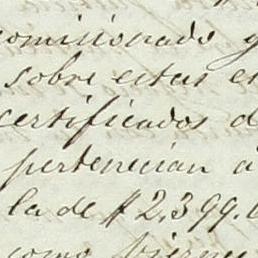 comisionado y
sobre estas e
certificados d
pertenecian á
la de $2,399.
como